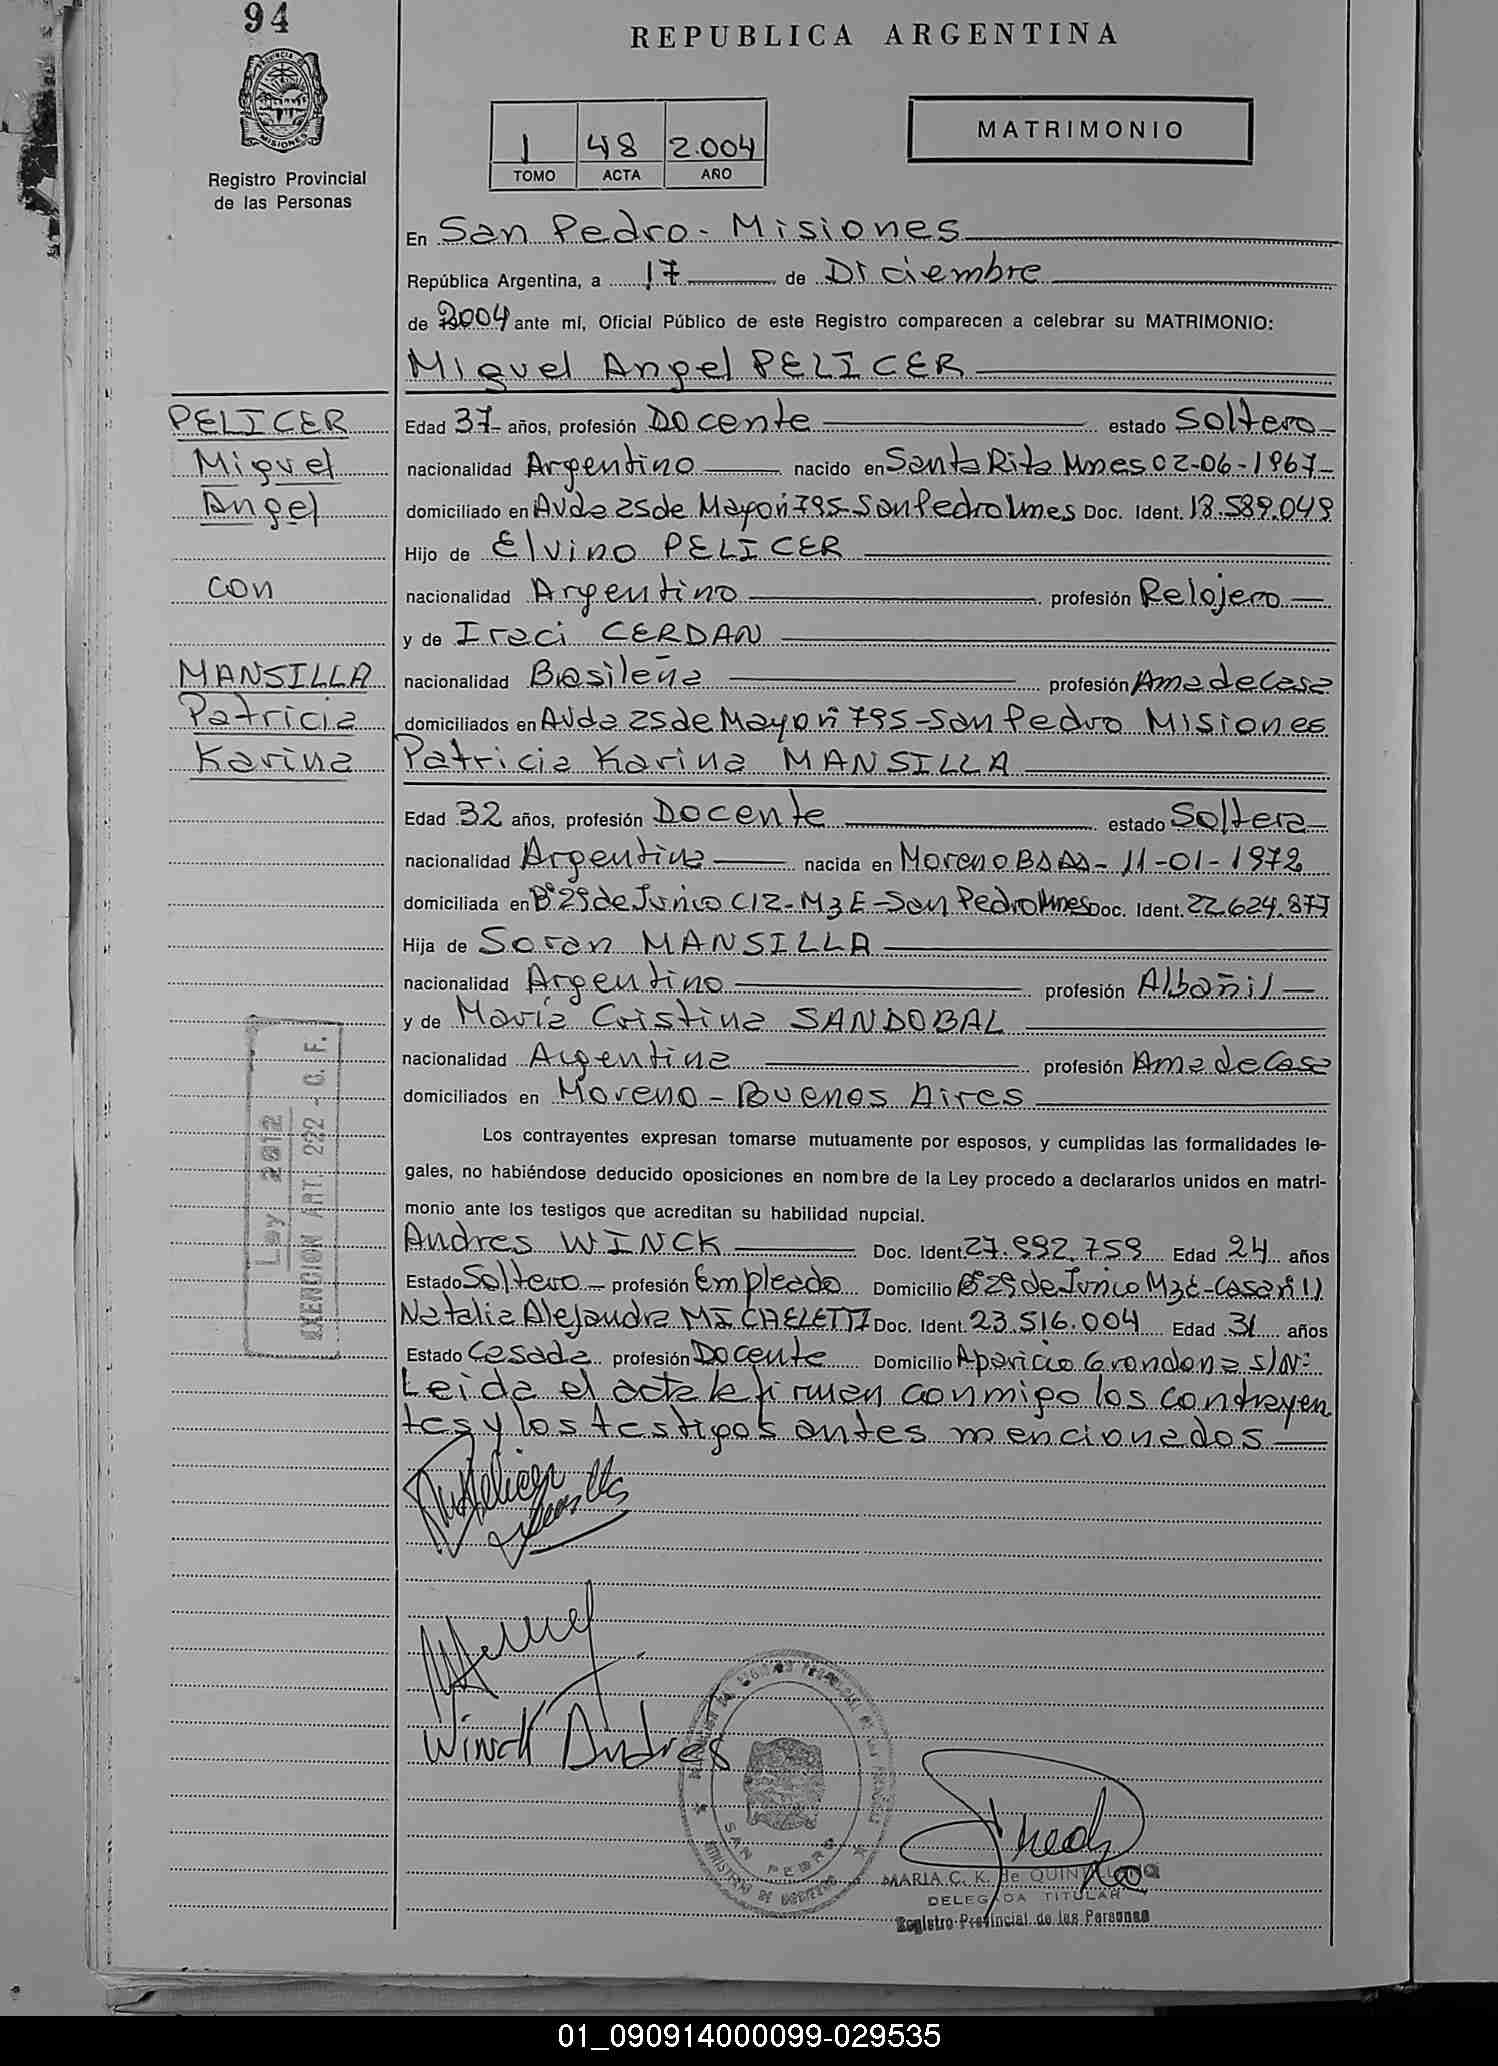 94
REPUBLICA ARGENTINA
PROVINCIA DE
MISIONES
Registro Provincial
de las Personas
1 48 2.004
TOMO ACTA AÑO
MATRIMONIO
En San Pedro - Misiones
República Argentina, a 17 de Diciembre
de 2004 ante mí, Oficial Público de este Registro comparecen a celebrar su MATRIMONIO:
Miguel Angel PELICER
PELICER
Miguel
Angel
con
MANSILLA
Patricia
Karina
Edad 37 años, profesión Docente estado Soltero
nacionalidad Argentino nacido en Santa Rita Mnes 02-06-1967
domiciliado en Avda 25 de Mayo nº 795-San Pedro Mnes Doc. Ident. 18.589.049
Hijo de Elvino PELICER
nacionalidad Argentino profesión Relojero
y de Iraci CERDAN
nacionalidad Brasileña profesión Ama de Casa
domiciliados en Avda 25 de Mayo nº 795-San Pedro Misiones
Patricia Karina MANSILLA
Edad 32 años, profesión Docente estado Soltera
nacionalidad Argentina nacida en Moreno BSAS - 11-01-1972
domiciliada en Bº 29 de Junio C12-M3E-San Pedro Mnes Doc. Ident. 22.624.877
Hija de Soran MANSILLA
nacionalidad Argentino profesión Albañil
y de María Cristina SANDOBAL
nacionalidad Argentina profesión Ama de Casa
domiciliados en Moreno - Buenos Aires
Los contrayentes expresan tomarse mutuamente por esposos, y cumplidas las formalidades le-
gales, no habiéndose deducido oposiciones en nombre de la Ley procedo a declararlos unidos en matri-
monio ante los testigos que acreditan su habilidad nupcial.
Ley 2812
EXENCION ART. 222 - C. F.
Andres WINCK Doc. Ident. 27.992.759 Edad 24 años
Estado Soltero profesión Empleado Domicilio Bº 29 de Junio M3E-Casa nº 11
Natalia Alejandra MICHELETTI Doc. Ident. 23.516.004 Edad 31 años
Estado Casada profesión Docente Domicilio Aparicio Grondona S/Nº
Leida el acta la firman conmigo los contrayen
tes y los testigos antes mencionados
Winck Andrés
SAN PEDRO
MINISTERIO DE GOBIERNO
MARIA C. K. de
DELEGADA TITULAR
Registro Provincial de las Personas
01_090914000099-029535